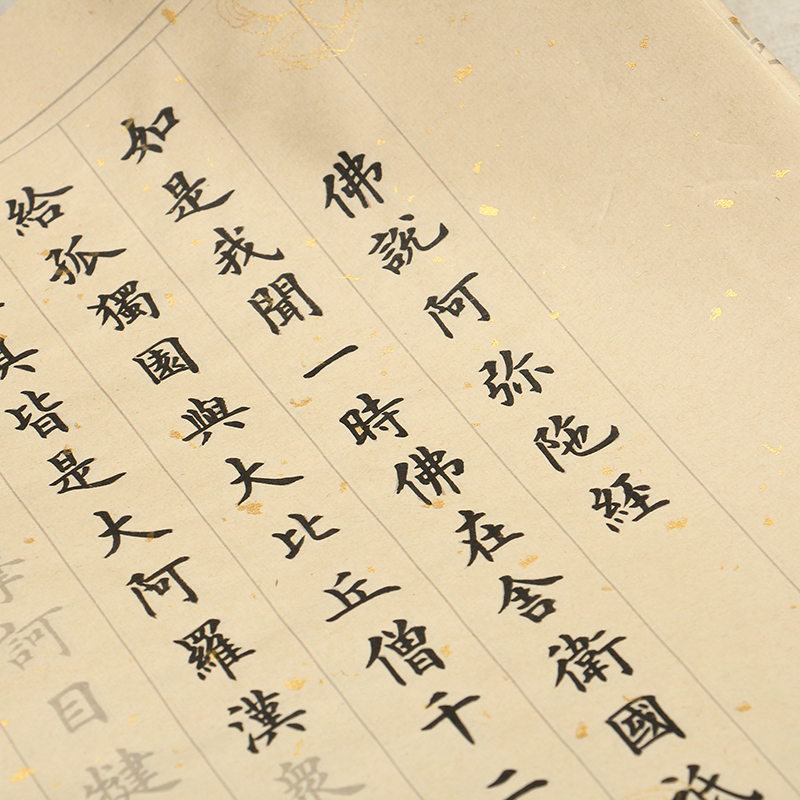 佛說阿弥陀經
如是我聞一時佛在舍衛國祇
給孤獨園與大比丘僧千二
俱皆是大阿羅漢衆
訶目犍